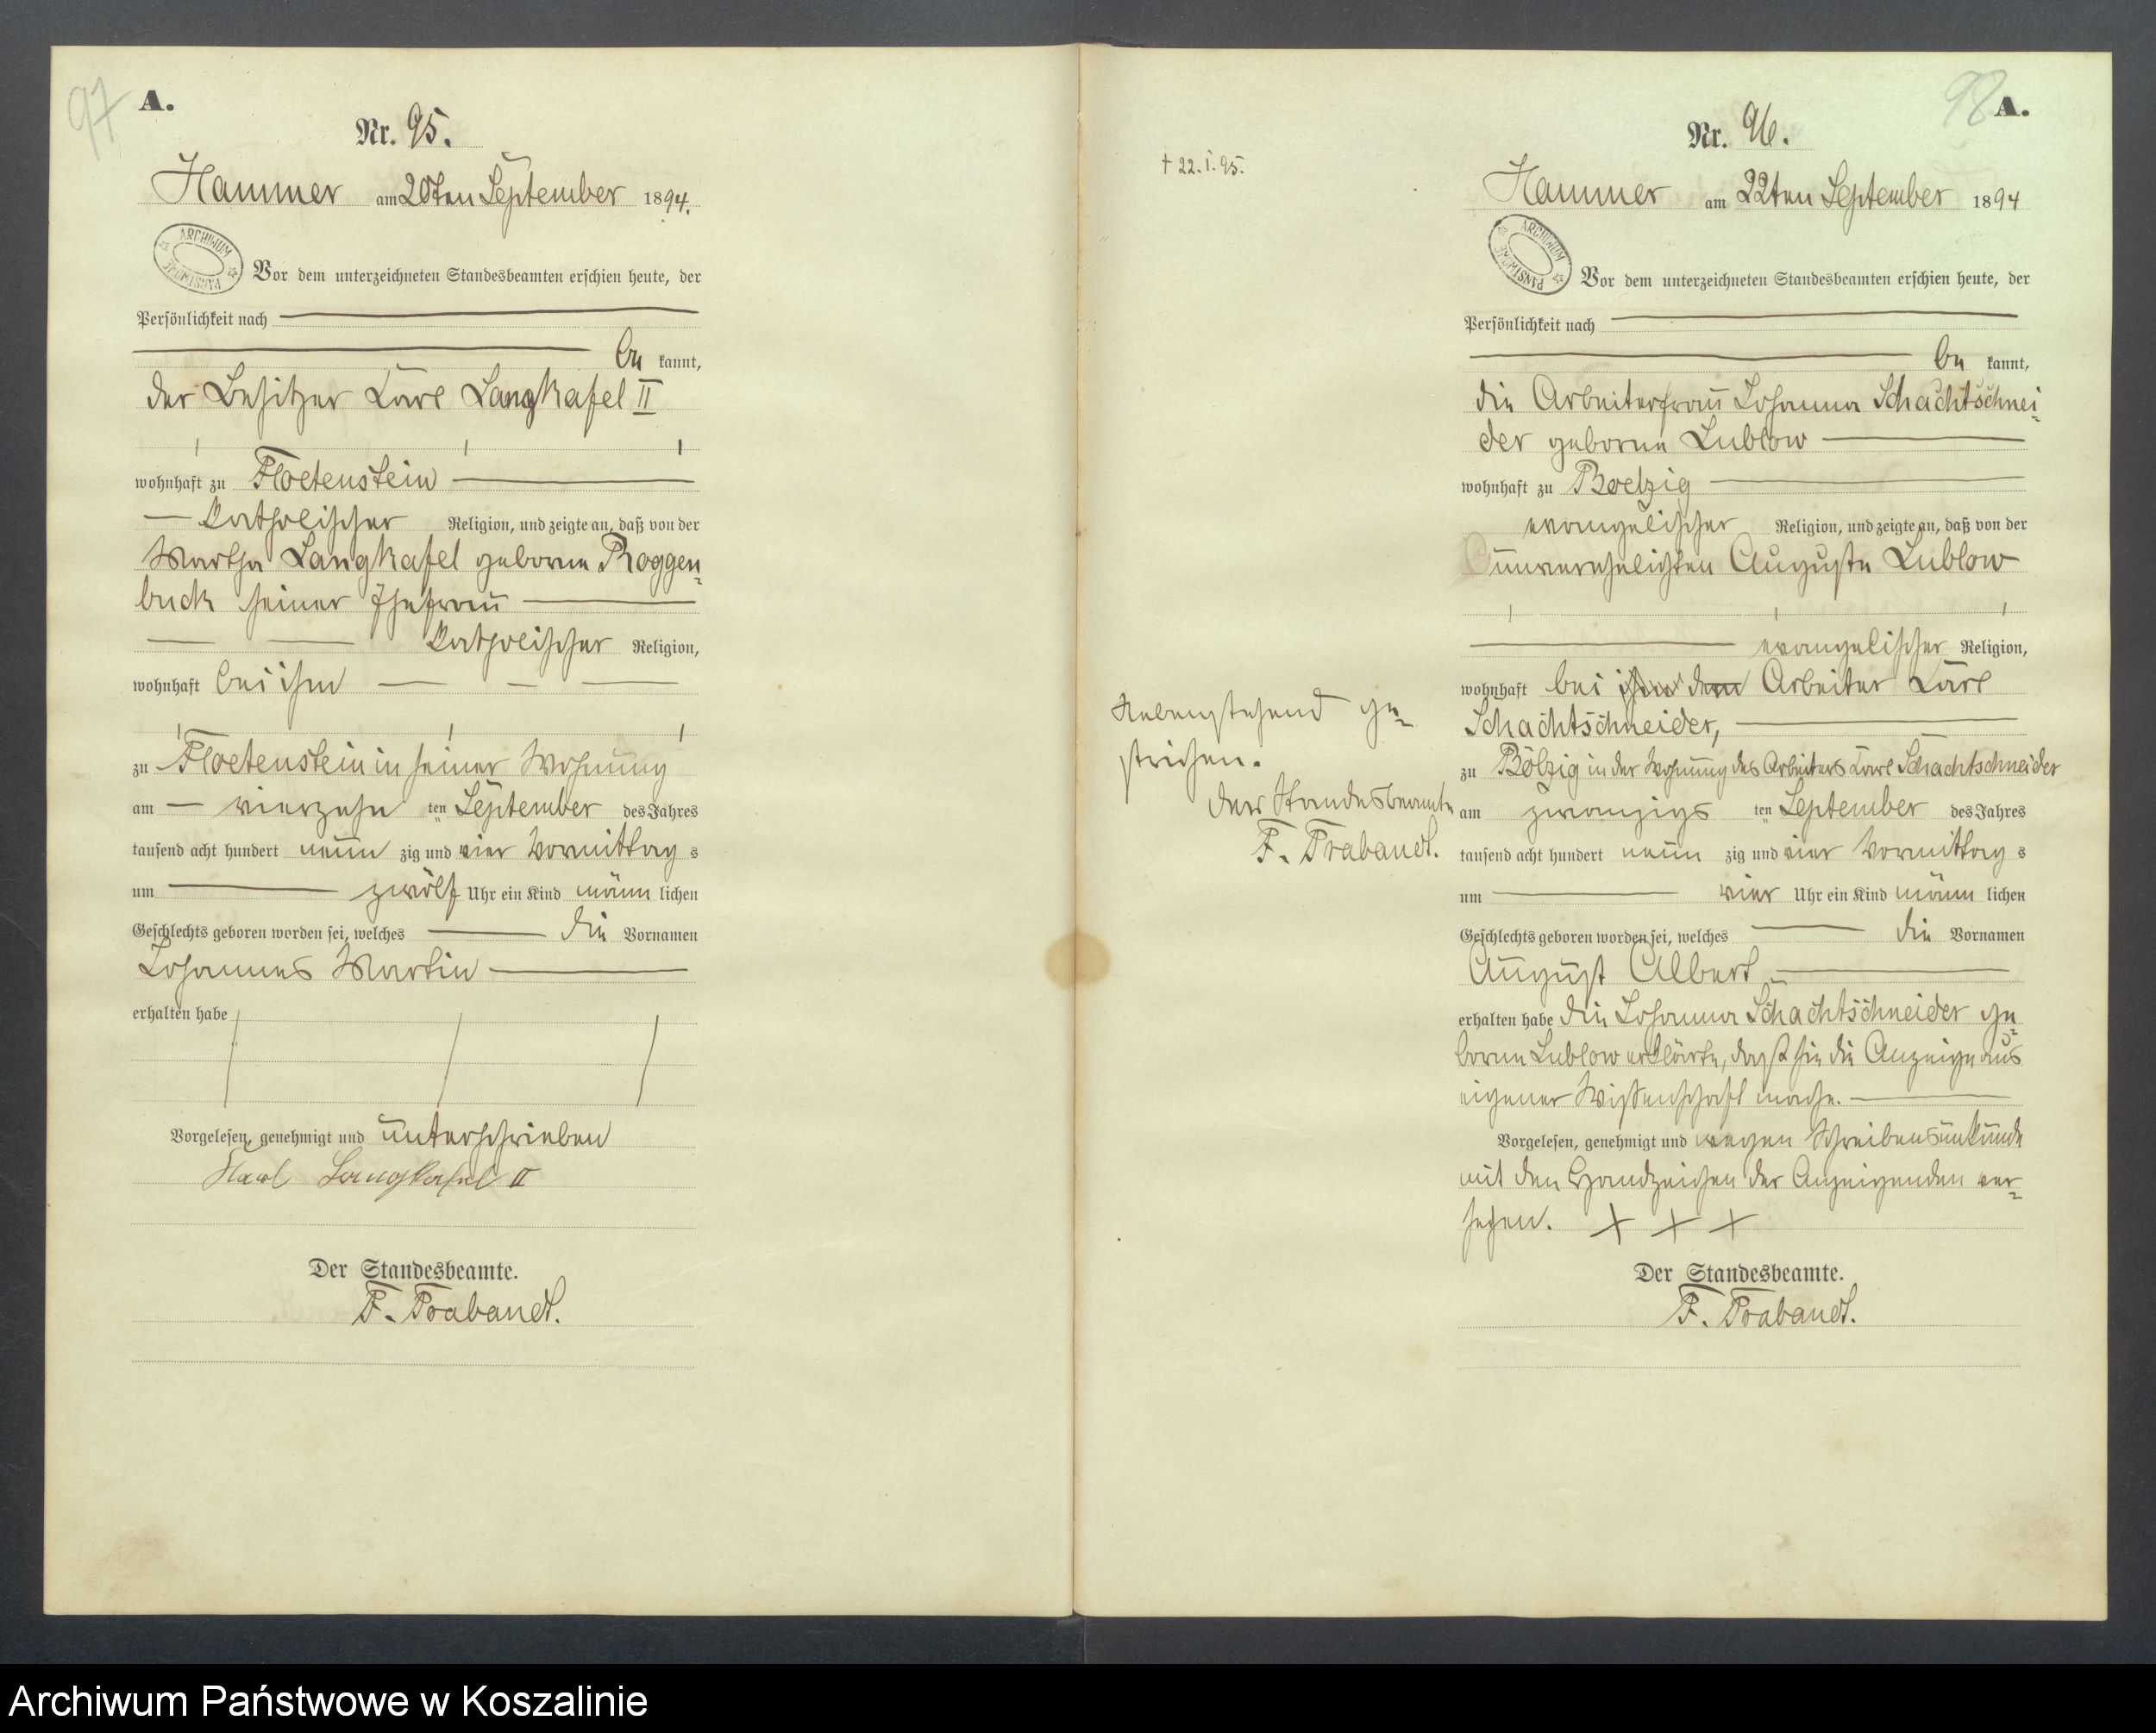 97
A.
Nr. 95.
Hammer am 20ten September 1894.
ARCHIWUM
PAŃSTWOWE
Vor dem unterzeichneten Standesbeamten erschien heute, der
Persönlichkeit nach
be kannt,
der Besitzer Karl Langkafel II
wohnhaft zu Floetenstein
katholischer Religion, und zeigte an, daß von der
Martha Langkafel geborne Roggen-
buck seiner Ehefrau
katholischer Religion,
wohnhaft bei ihm
zu Floetenstein in seiner Wohnung
am vierzehn ten September des Jahres
tausend acht hundert neun zig und vier Vormittag s
um zwölf Uhr ein Kind männ lichen
Geschlechts geboren worden sei, welches die Vornamen
Johannes Martin
erhalten habe
Vorgelesen, genehmigt und unterschrieben
Karl Langkafel II
Der Standesbeamte.
F. Trabandt.
† 22. I. 95.
Nebenstehend ge-
strichen.
Der Standesbeamte
F. Trabandt.
98
A.
Nr. 96.
Hammer am 22ten September 1894
ARCHIWUM
PAŃSTWOWE
Vor dem unterzeichneten Standesbeamten erschien heute, der
Persönlichkeit nach
be kannt,
die Arbeiterfrau Johanna Schachtschnei-
der geborne Lublow
wohnhaft zu Boelzig
evangelischer Religion, und zeigte an, daß von der
unverehelichten Auguste Lublow
evangelischer Religion,
wohnhaft bei ihm dem Arbeiter Karl
Schachtschneider,
zu Bölzig in der Wohnung des Arbeiters Karl Schachtschneider
am zwanzigs ten September des Jahres
tausend acht hundert neun zig und vier Vormittag s
um vier Uhr ein Kind männ lichen
Geschlechts geboren worden sei, welches die Vornamen
August Albert
erhalten habe Die Johanna Schachtschneider ge-
borne Lublow erklärte, dass sie die Anzeige aus
eigener Wissenschaft mache.
Vorgelesen, genehmigt und wegen Schreibensunkunde
mit den Handzeichen der Anzeigenden ver-
sehen. + + +
Der Standesbeamte.
F. Trabandt.
Archiwum Państwowe w Koszalinie